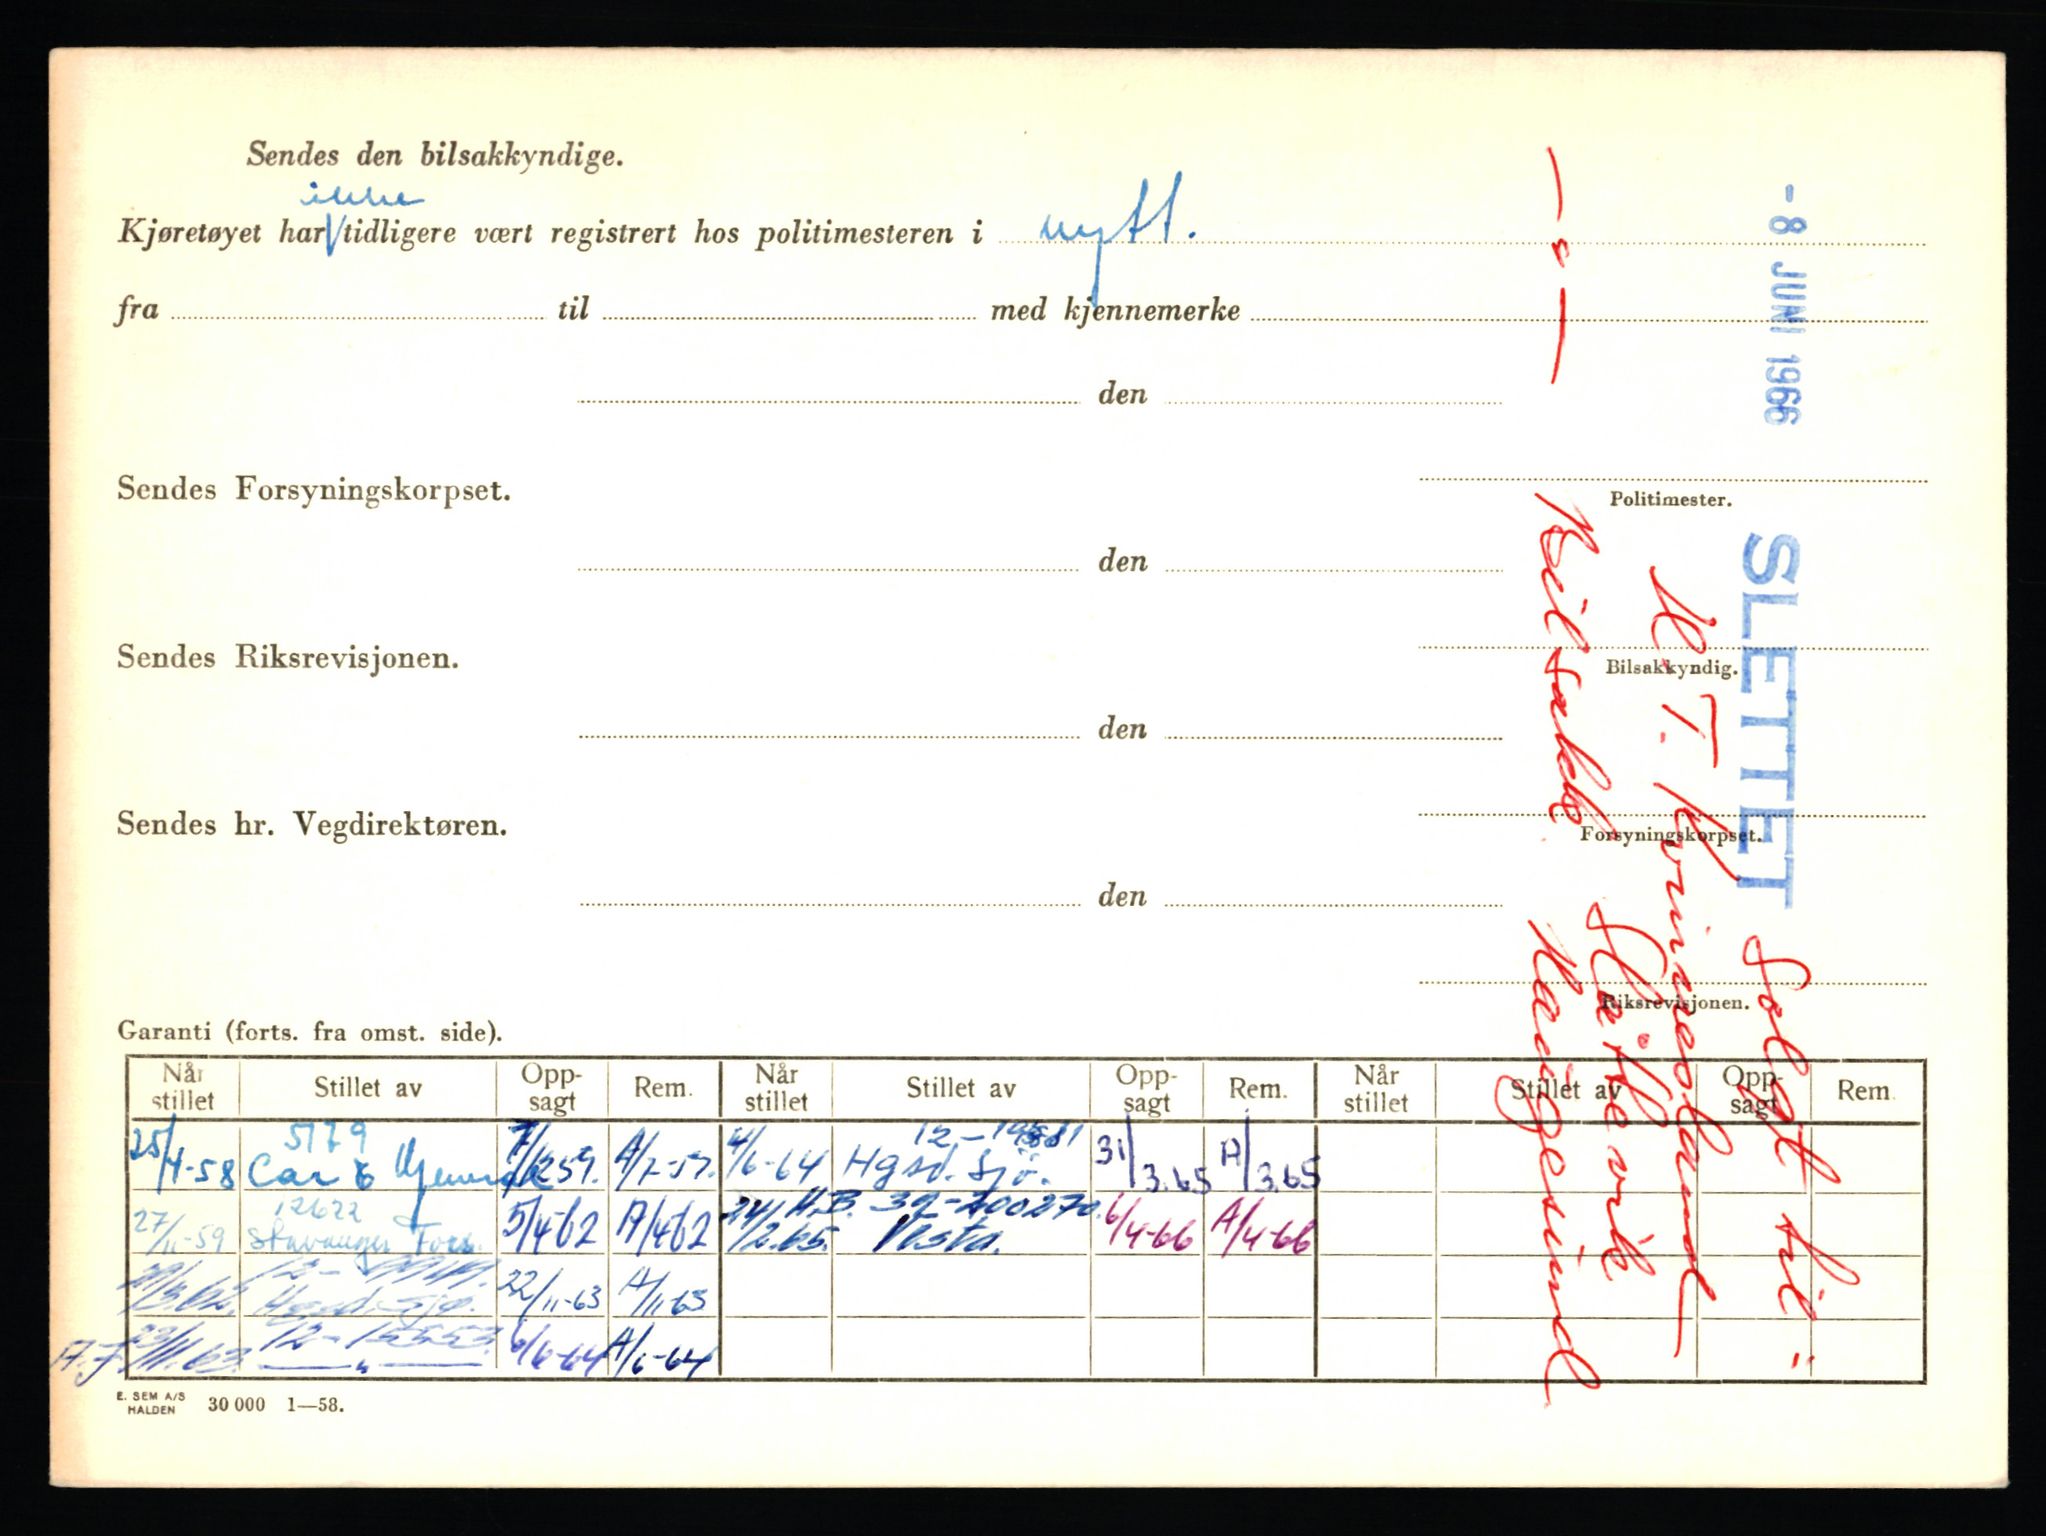 Sendes den bilsakkyndige.
ikke
Kjøretøyet har tidligere vært registrert hos politimesteren i nytt.
fra til med kjennemerke
den
Sendes Forsyningskorpset.
Politimester.
den
Sendes Riksrevisjonen.
Bilsakkyndig.
den
Sendes hr. Vegdirektøren.
Forsyningskorpset.
den
Riksrevisjonen.
- 8 JUNI 1966
SLETTET
Solgt til
H. T. Kvinnesland
Skåkevik
Haugesund
Garanti (forts. fra omst. side).
Når stillet Stillet av Opp-sagt Rem. Når stillet Stillet av Opp-sagt Rem. Når stillet Stillet av Opp-sagt Rem.
5179
25/4-58 Car & A/7-59. 4/6-64 Hgsd. Sjø. 31/3.65 A/3.65
12622
27/11-59 Stavanger Fors. 5/4-62 A/4-62 H.B. 39-200270. Vesta. 6/4-66 A/4-66
Hgsd. Sjø. 22/11-63 A/11-63
A.F. 23/11.63. 12-15553. 6/6-64 A/6-64
E. SEM A/S
HALDEN 30 000 1—58.